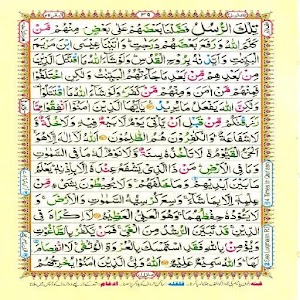 تِلْكَ الرُّسُلُ فَضَّلْنَا بَعْضَهُمْ عَلٰى بَعْضٍ مِنْهُمْ مَّنْ
كَلَّمَ اللّٰهُ وَرَفَعَ بَعْضَهُمْ دَرَجٰتٍ وَاٰتَيْنَا عِيْسَى ابْنَ مَرْيَمَ
الْبَيِّنٰتِ وَاَيَّدْنٰهُ بِرُوْحِ الْقُدُسِ وَلَوْ شَآءَ اللّٰهُ مَا اقْتَتَلَ الَّذِيْنَ
مِنْ بَعْدِهِمْ مِّنْ بَعْدِ مَا جَآءَتْهُمُ الْبَيِّنٰتُ وَلٰكِنِ اخْتَلَفُوْا
فَمِنْهُمْ مَّنْ اٰمَنَ وَمِنْهُمْ مَّنْ كَفَرَ وَلَوْ شَآءَ اللّٰهُ مَا اقْتَتَلُوْا
وَلٰكِنَّ اللّٰهَ يَفْعَلُ مَا يُرِيْدُ يٰٓاَيُّهَا الَّذِيْنَ اٰمَنُوْٓا اَنْفِقُوْا
مِمَّا رَزَقْنٰكُمْ مِّنْ قَبْلِ اَنْ يَّاْتِيَ يَوْمٌ لَّا بَيْعٌ فِيْهِ وَلَا خُلَّةٌ
وَّلَا شَفَاعَةٌ وَالْكٰفِرُوْنَ هُمُ الظّٰلِمُوْنَ اَللّٰهُ لَآ اِلٰهَ اِلَّا هُوَ
الْحَيُّ الْقَيُّوْمُ لَا تَاْخُذُهٗ سِنَةٌ وَّلَا نَوْمٌ لَهٗ مَا فِي السَّمٰوٰتِ
وَمَا فِي الْاَرْضِ مَنْ ذَا الَّذِيْ يَشْفَعُ عِنْدَهٗٓ اِلَّا بِاِذْنِهٖ يَعْلَمُ
مَا بَيْنَ اَيْدِيْهِمْ وَمَا خَلْفَهُمْ وَلَا يُحِيْطُوْنَ بِشَيْءٍ مِّنْ
عِلْمِهٖٓ اِلَّا بِمَا شَآءَ وَسِعَ كُرْسِيُّهُ السَّمٰوٰتِ وَالْاَرْضَ
وَلَا يَـُٔوْدُهٗ حِفْظُهُمَا وَهُوَ الْعَلِيُّ الْعَظِيْمُ لَآ اِكْرَاهَ فِي
الدِّيْنِ قَدْ تَّبَيَّنَ الرُّشْدُ مِنَ الْغَيِّ فَمَنْ يَّكْفُرْ بِالطَّاغُوْتِ
وَيُؤْمِنْ بِاللّٰهِ فَقَدِ اسْتَمْسَكَ بِالْعُرْوَةِ الْوُثْقٰى لَا انْفِصَامَ
لَهَا وَاللّٰهُ سَمِيْعٌ عَلِيْمٌ اَللّٰهُ وَلِيُّ الَّذِيْنَ اٰمَنُوْا يُخْرِجُهُمْ